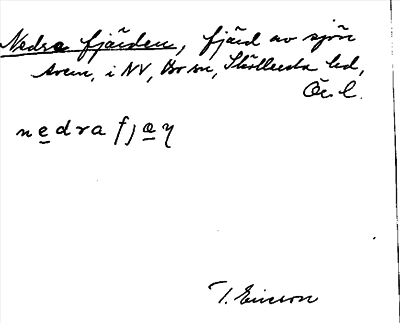 Nedra fjärden, fjärd av sjön
Aven, i NV, Bo sn, Sköllersta hd,
Ör. l.
nedra fjaɳ
T. Ericson